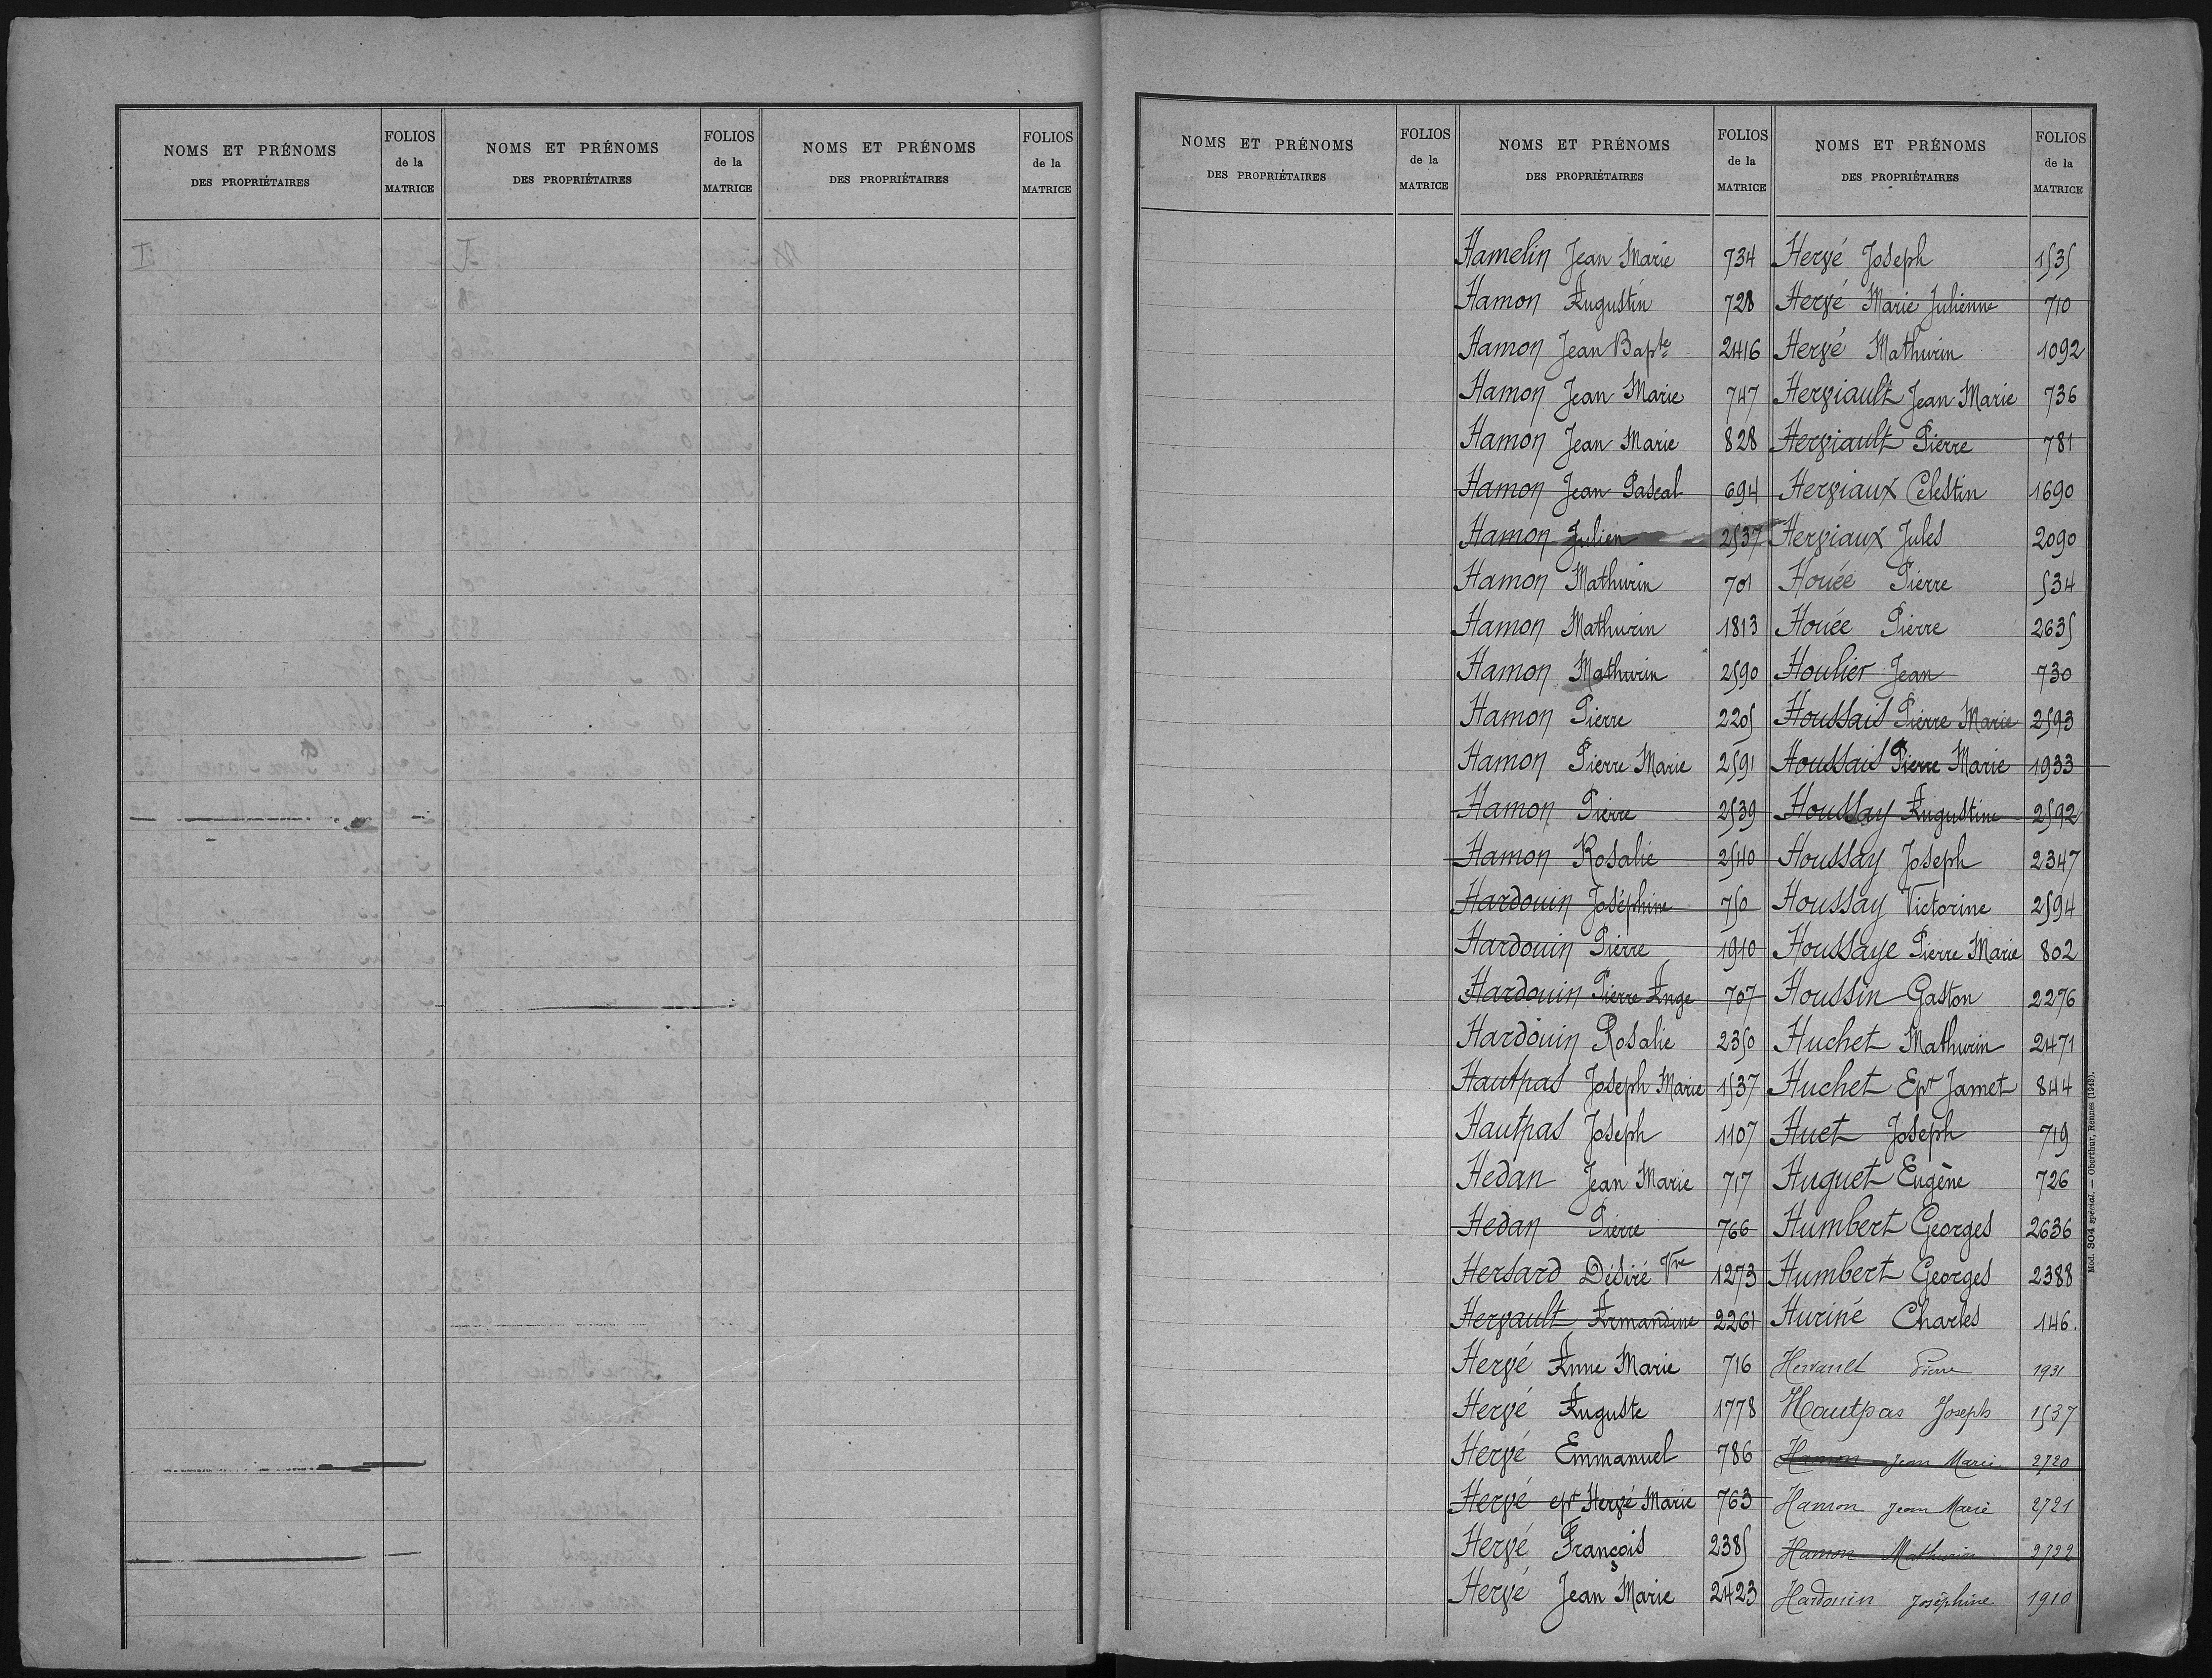 NOMS ET PRÉNOMS
DES PROPRIÉTAIRES
FOLIOS
de la
MATRICE
NOMS ET PRÉNOMS
DES PROPRIÉTAIRES
FOLIOS
de la
MATRICE
NOMS ET PRÉNOMS
DES PROPRIÉTAIRES
FOLIOS
de la
MATRICE
NOMS ET PRÉNOMS
DES PROPRIÉTAIRES
FOLIOS
de la
MATRICE
NOMS ET PRÉNOMS
DES PROPRIÉTAIRES
FOLIOS
de la
MATRICE
Hamelin Jean Marie 734
Hamon Augustin 728
Hamon Jean Bapte 2416
Hamon Jean Marie 747
Hamon Jean Marie 828
Hamon Jean Pascal 694
Hamon Julien 2537
Hamon Mathurin 701
Hamon Mathurin 1813
Hamon Mathurin 2590
Hamon Pierre 2205
Hamon Pierre Marie 2591
Hamon Pierre 2539
Hamon Rosalie 2540
Hardouin Joséphine 750
Hardouin Pierre 1910
Hardouin Pierre Ange 707
Hardouin Rosalie 2350
Hautpas Joseph Marie 1537
Hautpas Joseph 1107
Hedan Jean Marie 717
Hedan Pierre 766
Hersard Désiré Vve 1273
Hervault Armandine 2261
Hervé Anne Marie 716
Hervé Auguste 1778
Hervé Emmanuel 786
Hervé ep Hervé Marie 763
Hervé François 2385
Hervé Jean Marie 2423
NOMS ET PRÉNOMS
DES PROPRIÉTAIRES
FOLIOS
de la
MATRICE
Hervé Joseph 1535
Hervé Marie Julienne 710
Hervé Mathurin 1092
Herviault Jean Marie 736
Herviault Pierre 781
Herviaux Celestin 1690
Herviaux Jules 2090
Houée Pierre 534
Houée Pierre 2635
Houlier Jean 730
Houssais Pierre Marie 2593
Houssais Pierre Marie 1933
Houssay Augustine 2592
Houssay Joseph 2347
Houssay Victorine 2594
Houssaye Pierre Marie 802
Houssin Gaston 2276
Huchet Mathurin 2471
Huchet Ep Jamet 844
Huet Joseph 719
Huguet Eugène 726
Humbert Georges 2636
Humbert Georges 2388
Huriné Charles 146.
Pierre 1931
Hautpas Joseph 1537
Hamon Jean Marie 2720
Hamon Jean Marie 2721
Hamon Mathurin 2722
Hardouin Joséphine 1910
Mod. 304 spécial. — Oberthur, Rennes (1943).